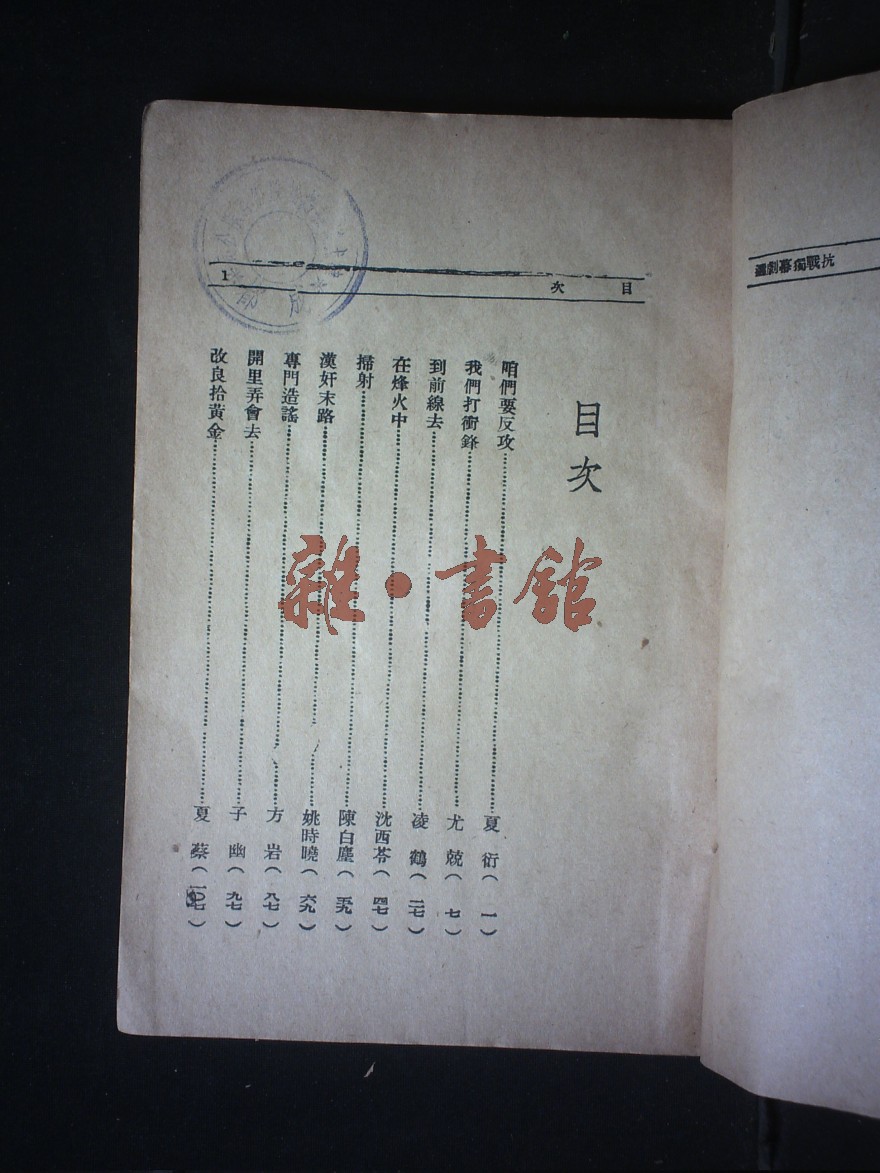 抗戰獨幕劇選
目 次
1
目次
咱們要反攻……夏 衍（ 一 ）
我們打衝鋒……尤 兢（ 七 ）
到前線去……凌 鶴（二七）
在烽火中……沈西苓（四七）
掃射……陳白塵（五九）
漢奸末路……姚時曉（六九）
專門造謠……方 岩（八七）
開里弄會去……子 幽（九七）
改良拾黃金……夏 蔡（一〇七）
雜·書館